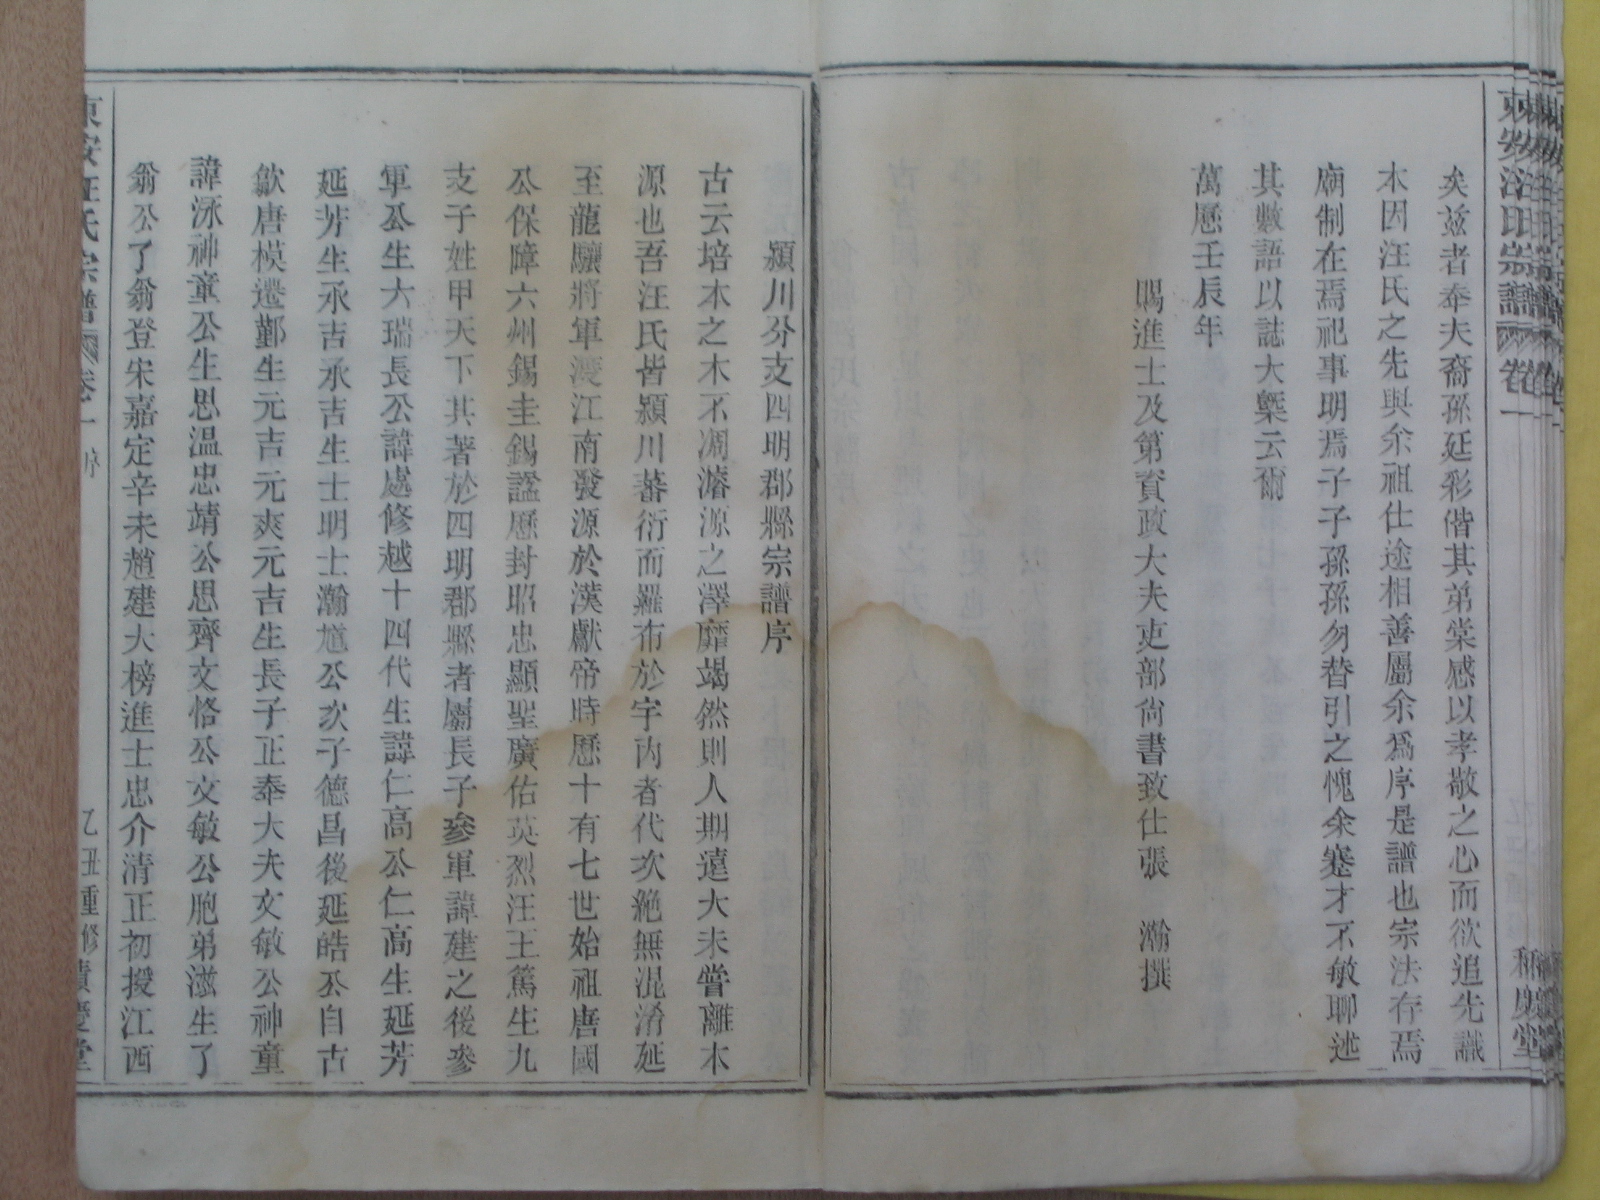 矣兹者泰夫裔孫廷彩偕其弟棠感以孝敬之心而欲追先識
木因汪氏之先與余祖仕途相善屬余爲序是譜也宗法存焉
廟制在焉祀事明焉子子孫孫勿替引之愧余蹇才不敏聊述
其數語以誌大槩云爾
萬厯壬辰年
賜進士及第資政大夫吏部尙書致仕張 瀚撰
潁川分支四明郡縣宗譜序
古云培木之木不凋濬源之澤靡竭然則人期遠大未嘗離木
源也吾汪氏皆潁川蕃衍而羅布於宇內者代次絶無混淆延
至龍驤將軍渡江南發源於漢獻帝時厯十有七世始祖唐國
公保障六州錫圭錫謚厯封昭忠顯聖廣佑英烈汪王篤生九
支子姓甲天下其著於四明郡縣者屬長子參軍諱建之後參
軍公生大瑞長公諱處修越十四代生諱仁高公仁高生延芳
延芳生承吉承吉生士明士瀚馗公次子德昌後延皓公自古
歙唐模遷鄞生元吉元爽元吉生長子正奉大夫文敏公神童
諱洙神童公生思溫忠靖公思齊文恪公文敏公胞弟滋生了
翁公了翁登宋嘉定辛未趙建大榜進士忠介清正初授江西
東安汪氏宗譜 卷一 序 乙丑重修 積慶堂
卷一